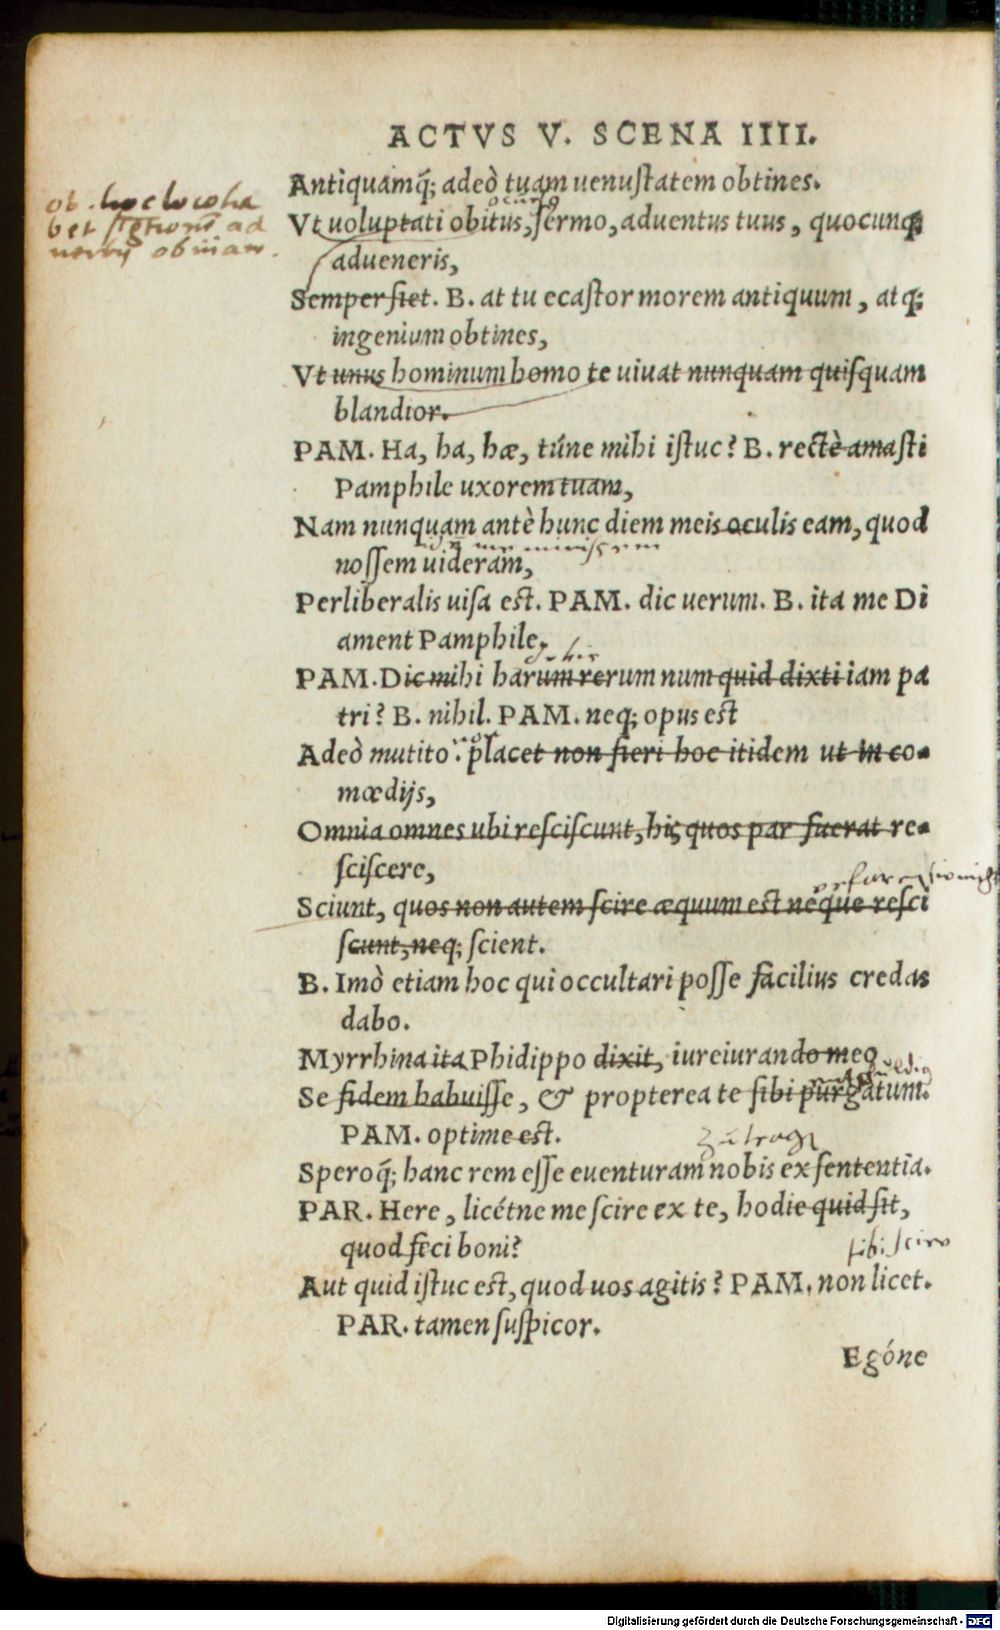 ACTVS V. SCENA IIII.
Antiquamq́; adeò tuam uenuſtatem obtines.
ob. hoc loco ha
bet ſigni ad
obuiam.
Vt uoluptati obitus, ſermo, aduentus tuus, quocunq;
adueneris,
Semper ſiet. B. at tu ecaſtor morem antiquum, atq;
ingenium obtines,
Vt unus hominum homo te uiuat nunquam quiſquam
blandior.
PAM. Ha, ha, hæ, túne mihi iſtuc? B. rectè amaſti
Pamphile uxorem tuam,
Nam nunquam antè hunc diem meis oculis eam, quod
noſſem uideram,
Perliberalis uiſa est. PAM. dic uerum. B. ita me Di
ament Pamphile.
PAM. Dic mihi harum rerum num quid dixti iam pa
tri? B. nihil. PAM. neq; opus est
Adeò mutito. placet non fieri hoc itidem ut in co-
mœdijs,
Omnia omnes ubi reſciſcunt, hic quos par fuerat re-
ſciſcere,
Sciunt, quos non autem ſcire æquum est neque reſci
ſcunt, neq; ſcient.
B. Imò etiam hoc qui occultari poſſe facilius credas
dabo.
Myrrhina ita Phidippo dixit, iureiurando meo
Se fidem habuiſſe, & propterea te ſibi purgatum.
PAM. optime est.
Speroq́; hanc rem eſſe euenturam nobis ex ſententia.
PAR. Here, licétne me ſcire ex te, hodie quid ſit,
quod feci boni?
ſibi ſcire
Aut quid iſtuc est, quod uos agitis? PAM. non licet.
PAR. tamen ſuſpicor.
Egóne
Digitalisierung gefördert durch die Deutsche Forschungsgemeinschaft - DFG